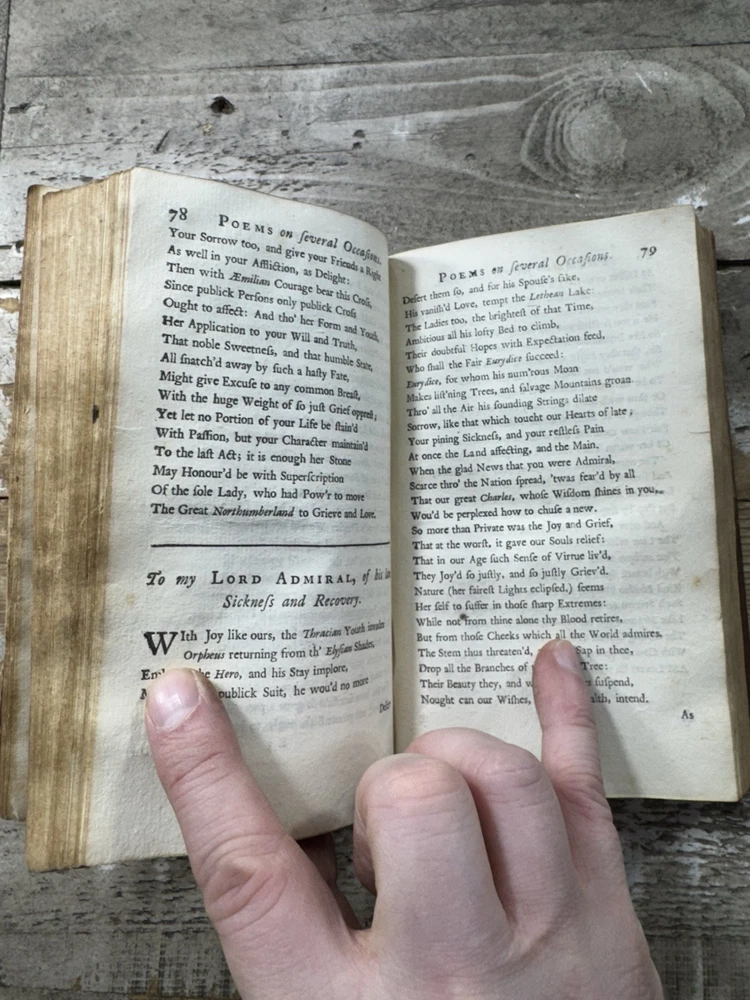 78 POEMS on ſeveral Occaſions.
Your Sorrow too, and give your Friends a Right
As well in your Affliction, as Delight:
Then with Æmilian Courage bear this Croſs,
Since publick Perſons only publick Croſs
Ought to affect: And tho' her Form and Youth,
Her Application to your Will and Truth,
That noble Sweetneſs, and that humble State,
All ſnatch'd away by ſuch a haſty Fate,
Might give Excuſe to any common Breaſt,
With the huge Weight of ſo juſt Grief oppreſt;
Yet let no Portion of your Life be ſtain'd
With Paſſion, but your Character maintain'd
To the laſt Act; it is enough her Stone
May Honour'd be with Superſcription
Of the ſole Lady, who had Pow'r to move
The Great Northumberland to Grieve and Love.
To my LORD ADMIRAL, of his
Sickneſs and Recovery.
WIth Joy like ours, the Thracian Youth invades
Orpheus returning from th' Elyſian Shades,
Hero, and his Stay implore,
publick Suit, he wou'd no more
Deſert
POEMS on ſeveral Occaſions. 79
Deſert them ſo, and for his Spouſe's ſake,
His vaniſh'd Love, tempt the Lethean Lake:
The Ladies too, the brighteſt of that Time,
Ambitious all his lofty Bed to climb,
Their doubtful Hopes with Expectation feed,
Who ſhall the Fair Eurydice ſucceed:
Eurydice, for whom his num'rous Moan
Makes liſt'ning Trees, and ſalvage Mountains groan.
Thro' all the Air his ſounding Strings dilate
Sorrow, like that which toucht our Hearts of late;
Your pining Sickneſs, and your reſtleſs Pain
At once the Land affecting, and the Main.
When the glad News that you were Admiral,
Scarce thro' the Nation ſpread, 'twas fear'd by all
That our great Charles, whoſe Wiſdom ſhines in you,
Wou'd be perplexed how to chuſe a new.
So more than Private was the Joy and Grief,
That at the worſt, it gave our Souls relief:
That in our Age ſuch Senſe of Virtue liv'd,
They Joy'd ſo juſtly, and ſo juſtly Griev'd.
Nature (her faireſt Lights eclipſed,) ſeems
Her ſelf to ſuffer in thoſe ſharp Extremes:
While not from thine alone thy Blood retires,
But from thoſe Cheeks which all the World admires.
The Stem thus threaten'd, Sap in thee,
Drop all the Branches of Tree:
Their Beauty they, and ſuſpend,
Nought can our Wiſhes, intend.
As